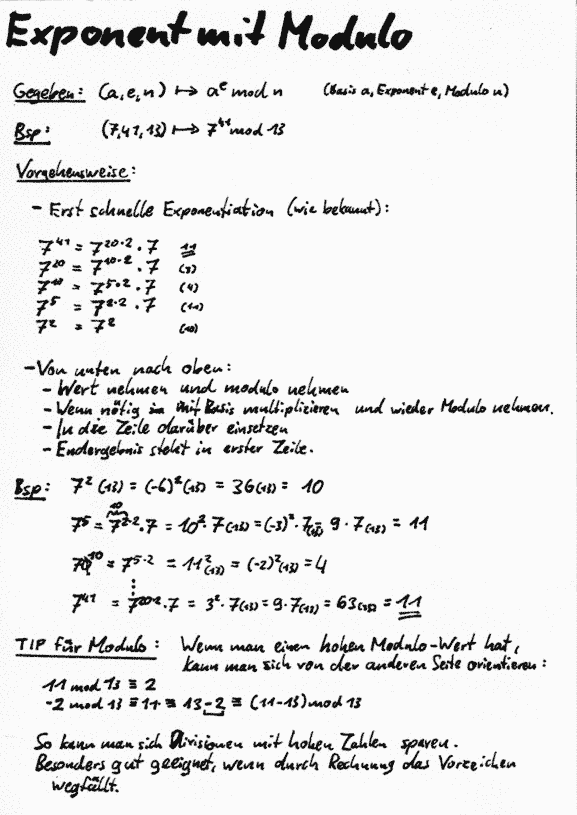 Exponent mit Modulo
Gegeben: (a, e, n) ↦ a^e mod n (Basis a, Exponent e, Modulo n)
Bsp: (7,41,13) ↦ 7^41 mod 13
Vorgehensweise:
- Erst schnelle Exponentiation (wie bekannt):
7^41 = 7^20·2 · 7 11
7^20 = 7^10·2 · 7 (3)
7^10 = 7^5·2 · 7 (4)
7^5 = 7^2·2 · 7 (11)
7^2 = 7^2 (10)
- Von unten nach oben:
- Wert nehmen und modulo nehmen
- Wenn nötig mit Basis multiplizieren und wieder Modulo nehmen.
- In die Zeile darüber einsetzen
- Endergebnis steht in erster Zeile.
Bsp: 7^2 (13) = (-6)^2 (13) = 36(13) = 10
10
7^5 = 7^2·2 · 7 = 10^2 · 7(13) = (-3)^2 · 7(13) 9 · 7(13) = 11
7^10 = 7^5·2 = 11^2(13) = (-2)^2(13) = 4
⋮
7^41 = 7^20·2 · 7 = 3^2 · 7(13) = 9 · 7(13) = 63(13) = 11
TIP für Modulo: Wenn man einen hohen Modulo-Wert hat,
kann man sich von der anderen Seite orientieren:
11 mod 13 ≡ 2
-2 mod 13 ≡ 11 ≡ 13-2 ≡ (11-13) mod 13
So kann man sich Divisionen mit hohen Zahlen sparen.
Besonders gut geeignet, wenn durch Rechnung das Vorzeichen
wegfällt.